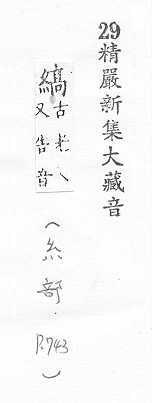 29精嚴新集大藏音
縞
古老乀
又告音
(糸部 P.743)